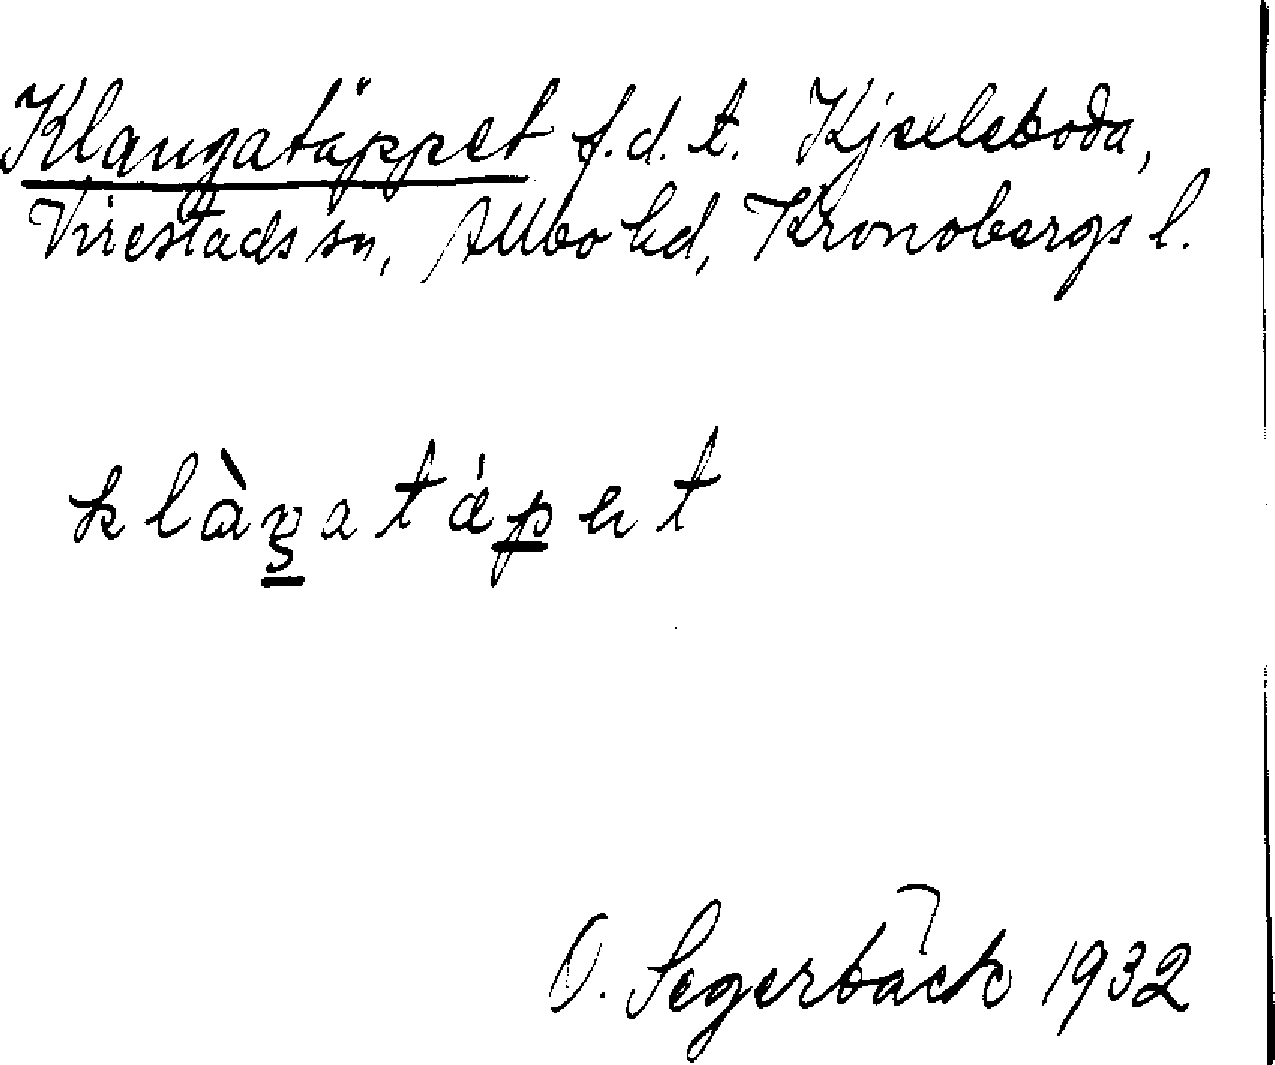 Klangatäppet f.d.t. Kjæleboda,
Virestads sn, Allbo hd, Kronobergs l.
O. Segerbäck 1932